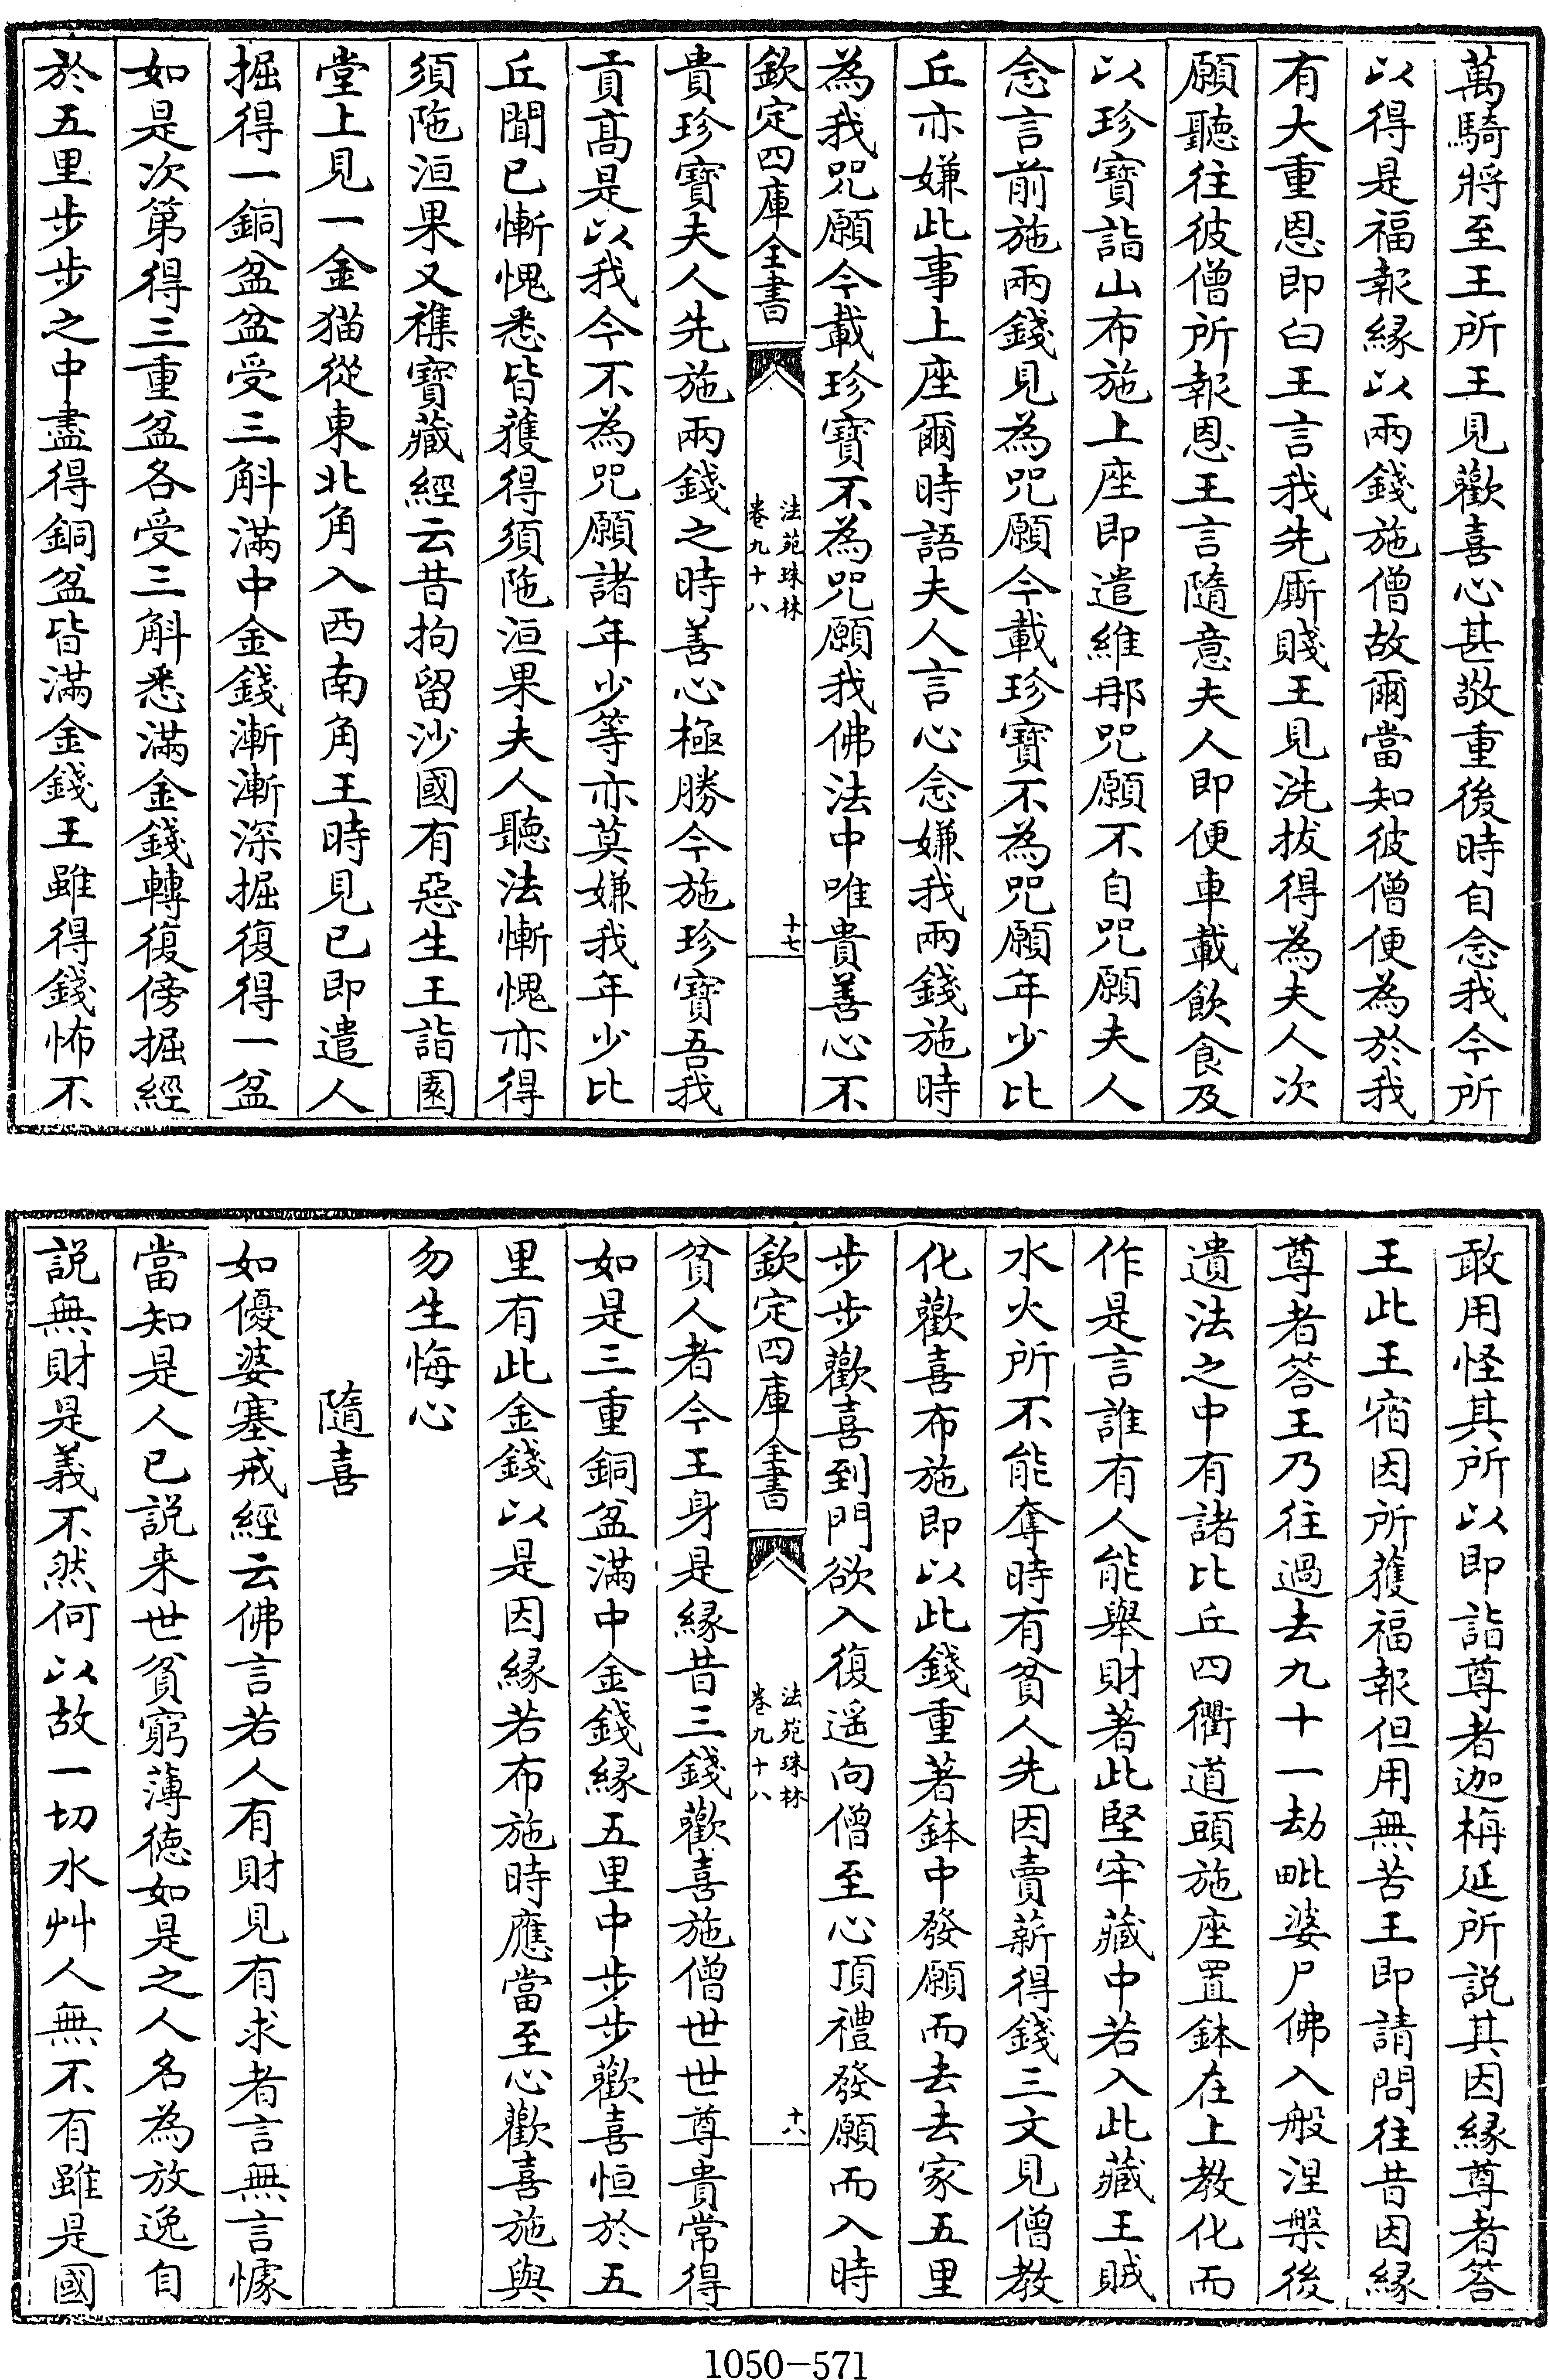 萬騎將至王所王見歡喜心甚敬重後時自念我今所
以得是福報縁以兩錢施僧故爾當知彼僧便為於我
有大重恩即白王言我先厮賤王見洗拔得為夫人次
願聽往彼僧所報恩王言隨意夫人即便車載飲食及
以珍寶詣山布施上座即遣維那咒願不自咒願夫人
念言前施兩錢見為咒願今載珍寶不為咒願年少比
丘亦嫌此事上座爾時語夫人言心念嫌我兩錢施時
為我咒願今載珍寶不為咒願我佛法中唯貴善心不
欽定四庫全書
法苑珠林
卷九十八
十七
貴珍寶夫人先施兩錢之時善心極勝今施珍寶吾我
貢髙是以我今不為咒願諸年少等亦莫嫌我年少比
丘聞已慚愧悉皆獲得須陁洹果夫人聽法慚愧亦得
須陁洹果又襍寶藏經云昔拘留沙國有惡生王詣園
堂上見一金猫從東北角入西南角王時見已即遣人
掘得一銅盆盆受三斛滿中金錢漸漸深掘復得一盆
如是次第得三重盆各受三斛悉滿金錢轉復傍掘經
於五里步步之中盡得銅盆皆滿金錢王雖得錢怖不
敢用怪其所以即詣尊者迦栴延所説其因縁尊者答
王此王宿因所獲福報但用無苦王即請問往昔因縁
尊者答王乃往過去九十一劫毗婆尸佛入般涅槃後
遺法之中有諸比丘四衢道頭施座置鉢在上教化而
作是言誰有人能舉財著此堅牢藏中若入此藏王賊
水火所不能奪時有貧人先因賣薪得錢三文見僧教
化歡喜布施即以此錢重著鉢中發願而去去家五里
步步歡喜到門欲入復遥向僧至心頂禮發願而入時
欽定四庫全書
法苑珠林
卷九十八
十八
貧人者今王身是縁昔三錢歡喜施僧世世尊貴常得
如是三重銅盆滿中金錢縁五里中步步歡喜恒於五
里有此金錢以是因縁若布施時應當至心歡喜施與
勿生悔心
隨喜
如優婆塞戒經云佛言若人有財見有求者言無言懅
當知是人已説来世貧窮薄徳如是之人名為放逸自
説無財是義不然何以故一切水艸人無不有雖是國
1050-571